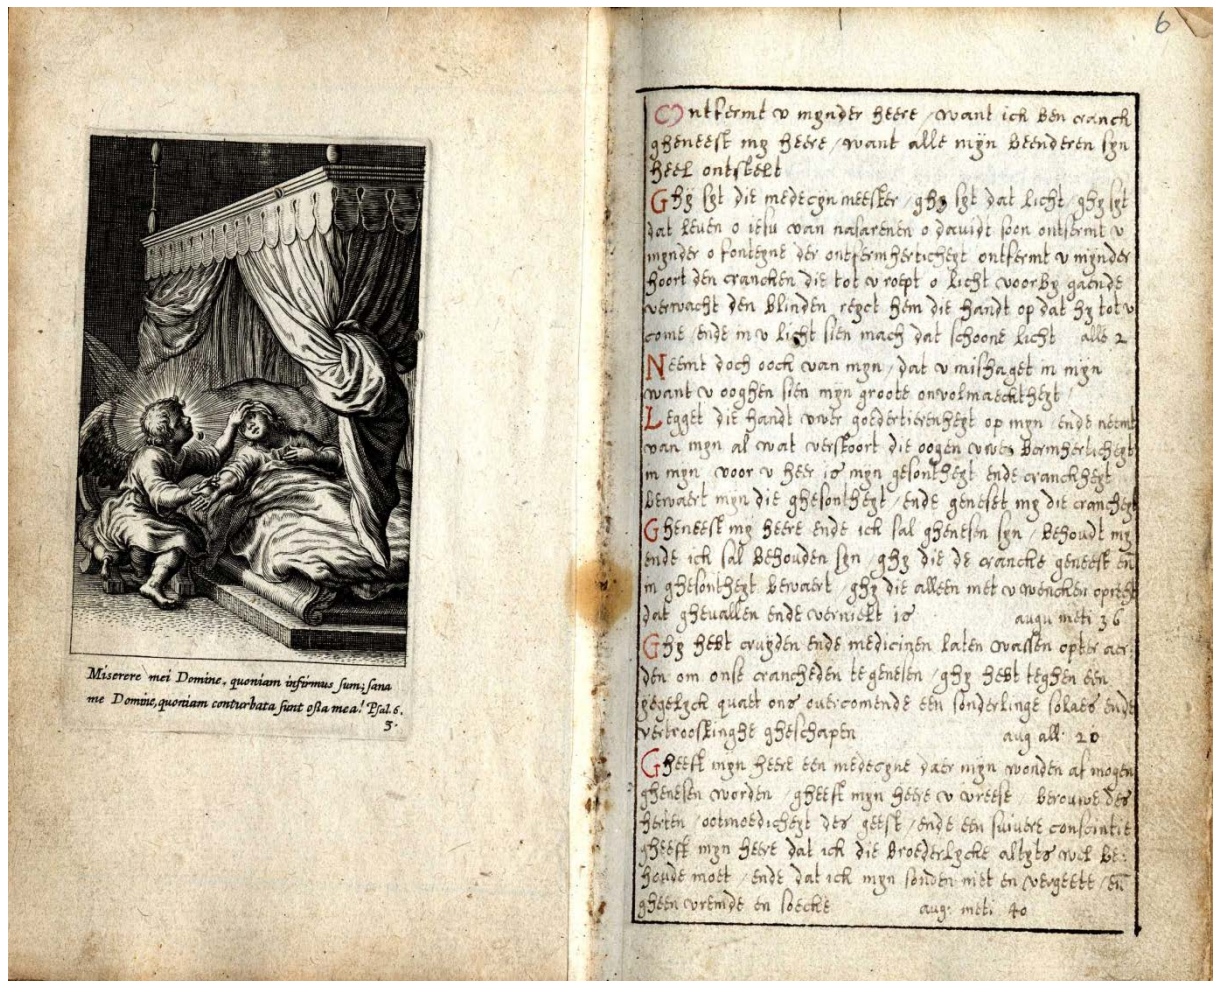 Miserere mei Domine, quoniam infirmus sum; sana
me Domine, quoniam conturbata sunt ossa mea! Psal. 6.
3.
6
Ontfermt v mynder heere / want ick ben cranck
gheneest my heere / want alle mijn beenderen syn
heel ontstelt
Ghy syt die medecyn meester / ghy syt dat licht / ghy syt
dat leven o iesu van nasarenen o davidt soon ontfermt v
mynder o fonteyne der ontfermherticheyt ontfermt v mynder
hoort den crancken die tot v roept o licht voorby gaende
verwacht den blinden reyct hem die handt op dat hy tot v
come / ende in v licht sien mach dat schoone licht alle 2
Neemt doch oock van myn / dat v mishaget in mijn
want v ooghen sien mijn groote onvolmaecktheyt /
Legget die handt uwer goedertierenheyt op myn / ende neemt
van myn al wat verstoort die oogen uwes bermherticheyt
in myn voor v heer is mijn gesontheyt ende cranckheyt
bewaert mijn die ghesontheyt / ende geneset my die crancheyt
Gheneest my heere ende ick sal ghenesen syn / behoudt my
ende ick sal behouden syn / ghy die de crancke geneest en
in ghesontheyt bewaert / ghy die alleen met v wencken oprecht
dat ghevallen ende vernielt is augu meti 36
Ghy hebt cruyden ende medicinen laten wassen opter aer:
den om onse crancheden te genesen / ghy hebt teghen een
yegelyck quaet ons overcomende een sonderlinge solaes ende
vertroostinghe gheschapen aug all: 20
Gheeft myn heere een medecyne daer mijn wonden af mogen
ghenesen worden / gheeft myn heere v vreese / berouwe des
herten / ootmoedicheyt des geest / ende een suivere conscintie
gheeft myn heere dat ick die broederlycke altyts wel be:
houde moet / ende dat ick myn sonden niet en vergeete / en
gheen vremde en soecke aug: meti 40